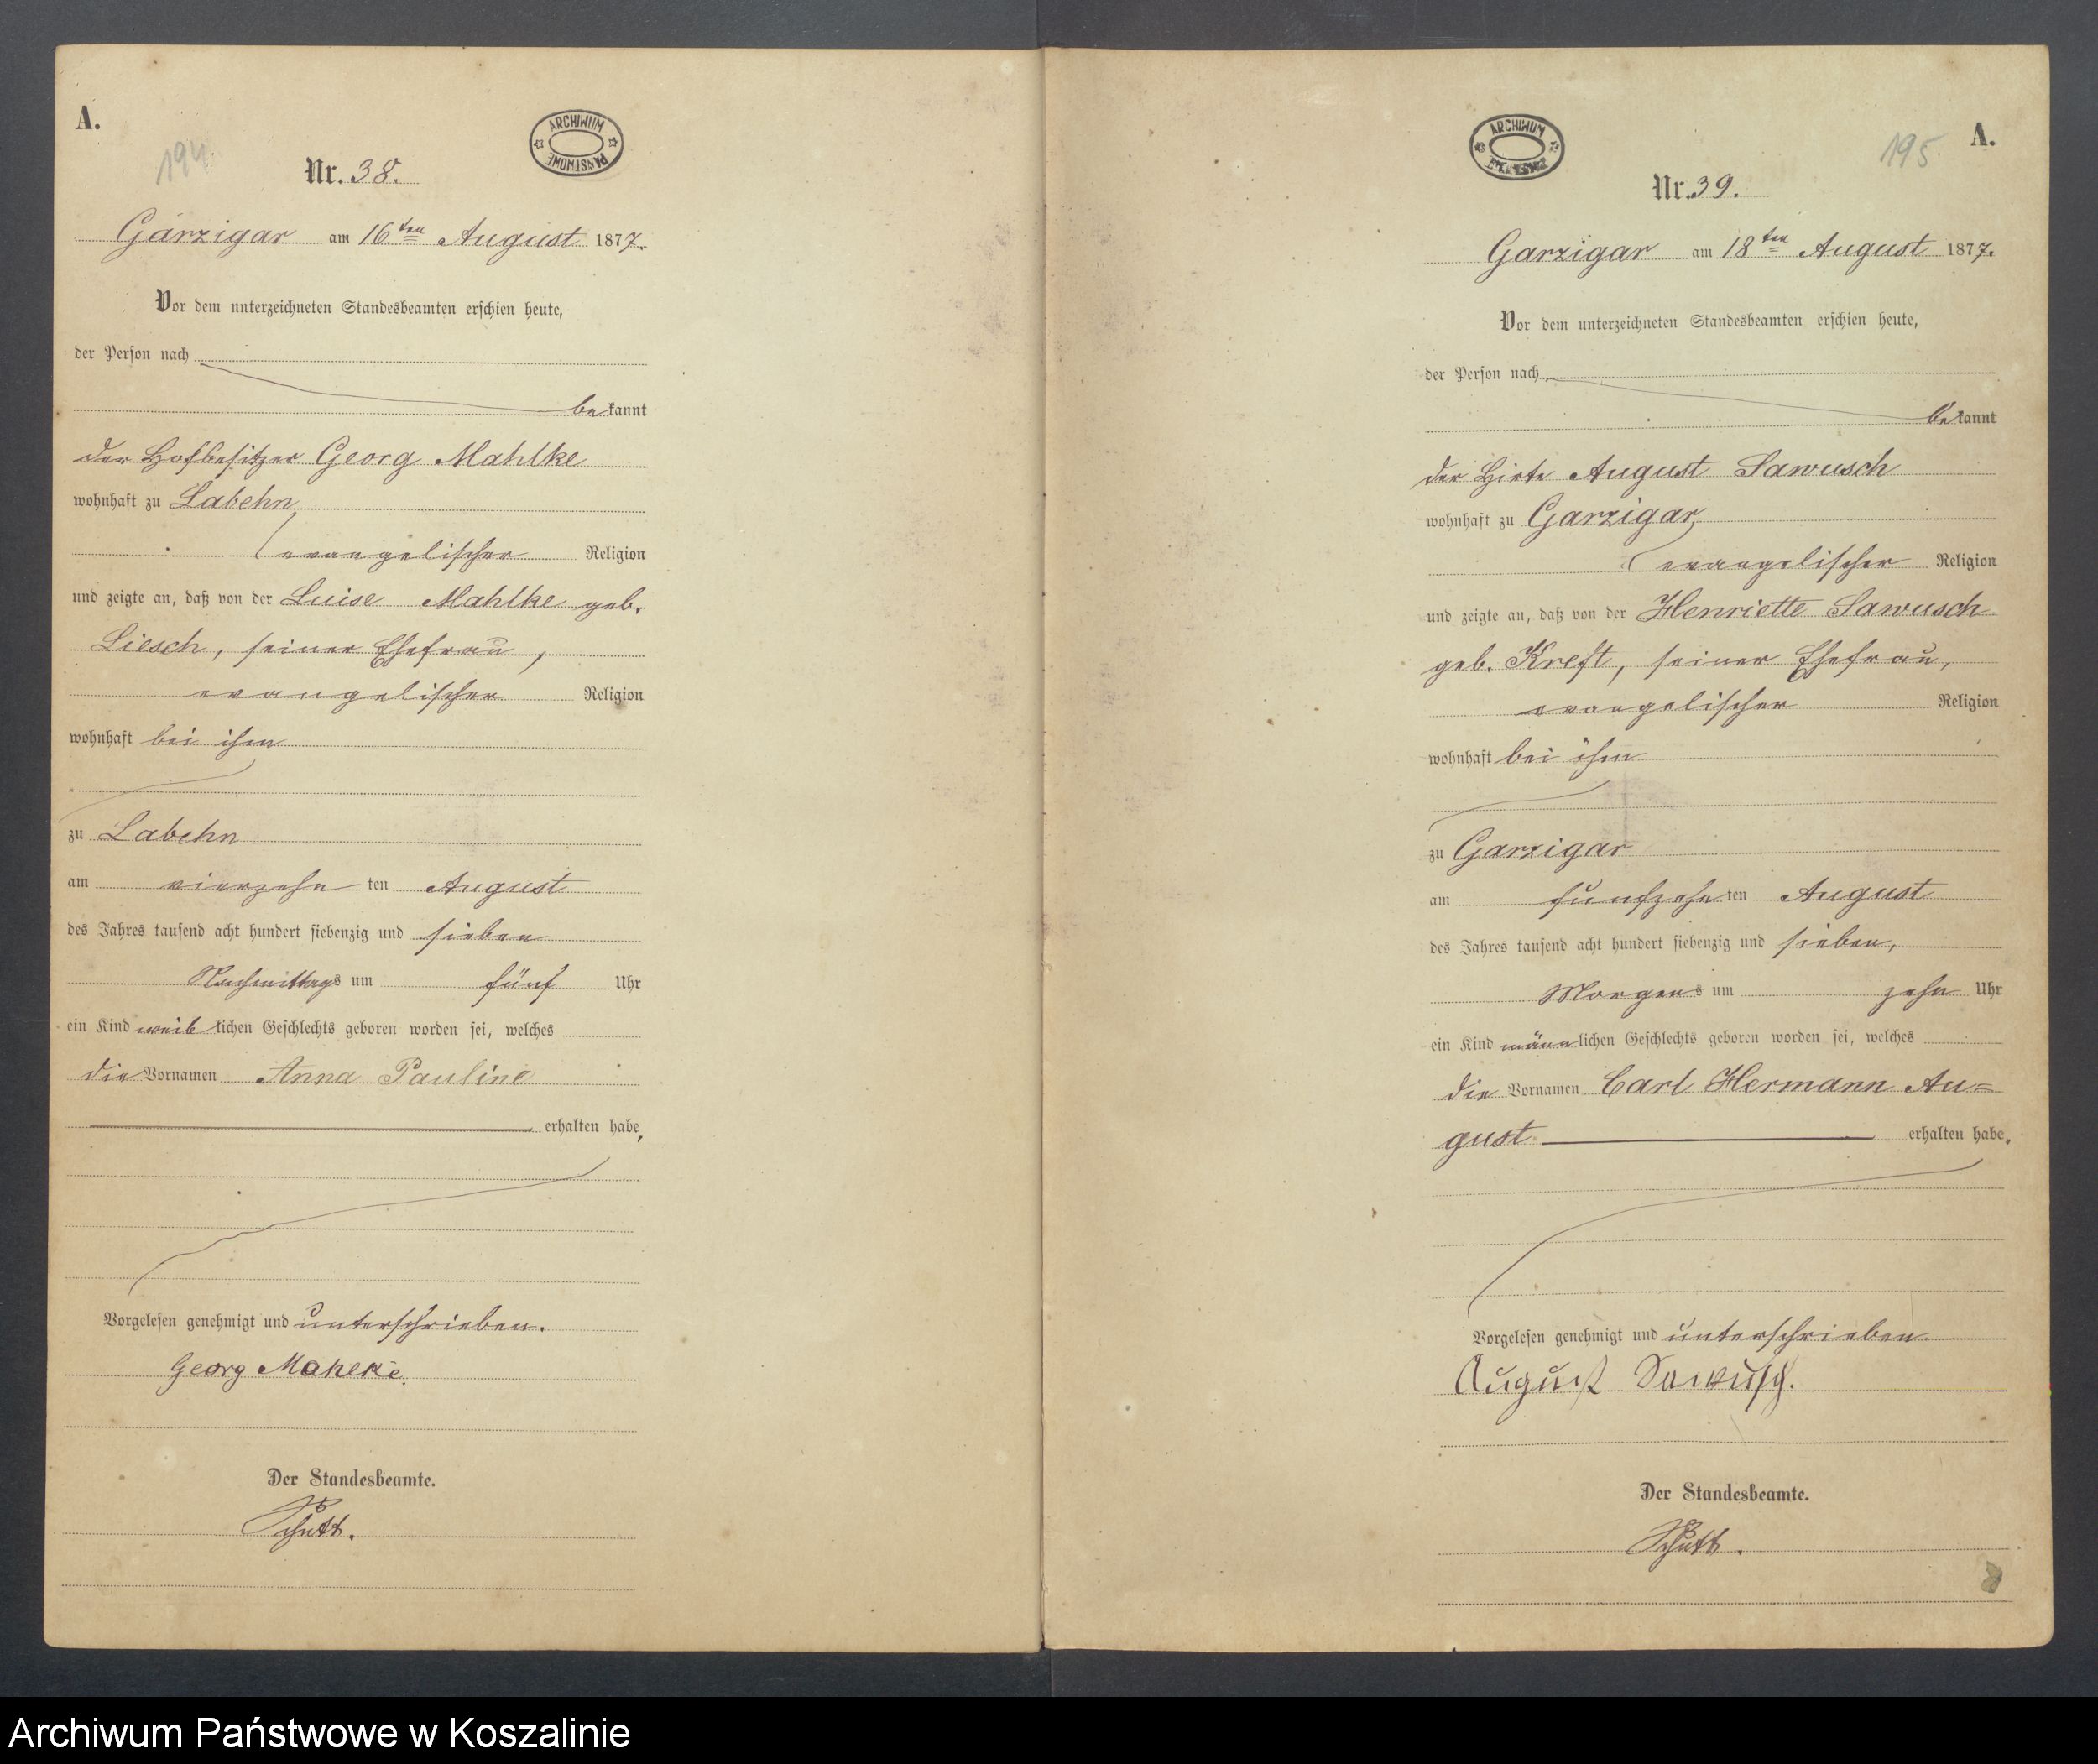 A.
194
Nr. 38.
ARCHIWUM PAŃSTWOWE
Garzigar am 16ten August 1877.
Vor dem unterzeichneten Standesbeamten erschien heute,
der Person nach
bekannt
der Hofbesitzer Georg Mahlke
wohnhaft zu Labehn
evangelischer Religion
und zeigte an, daß von der Luise Mahlke geb.
Liesch, seiner Ehefrau,
evangelischer Religion
wohnhaft bei ihm
zu Labehn
am vierzehn ten August
des Jahres tausend acht hundert siebenzig und sieben
Nachmittags um fünf Uhr
ein Kind weiblichen Geschlechts geboren worden sei, welches
die Vornamen Anna Pauline
erhalten habe,
Vorgelesen genehmigt und unterschrieben.
Georg Mahlke.
Der Standesbeamte.
ARCHIWUM
195
A.
Nr. 39.
Garzigar am 18ten August 1877.
Vor dem unterzeichneten Standesbeamten erschien heute,
der Person nach
bekannt
der Hirte August Sawusch
wohnhaft zu Garzigar,
evangelischer Religion
und zeigte an, daß von der Henriette Sawusch
geb. Kreft, seiner Ehefrau,
evangelischer Religion
wohnhaft bei ihm
zu Garzigar
am funfzehn ten August
des Jahres tausend acht hundert siebenzig und sieben,
Morgens um zehn Uhr
ein Kind männlichen Geschlechts geboren worden sei, welches
die Vornamen Carl Hermann Au=
gust erhalten habe.
Vorgelesen genehmigt und unterschrieben
August Sawusch.
Der Standesbeamte.
Archiwum Państwowe w Koszalinie